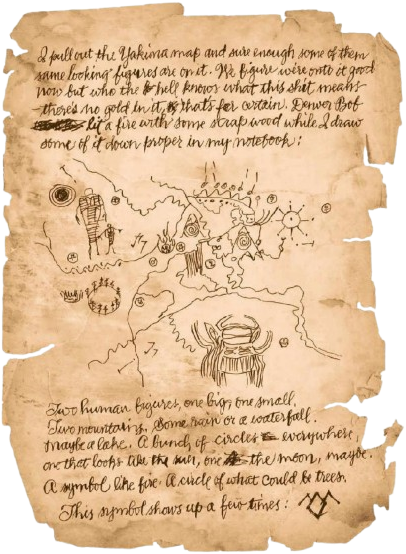 I pull out the Yakima map and sure enough some of them
same looking figures are on it. We figure we're onto it good
now but who the hell knows what this shit means
there's no gold in it, that's for certain. Denver Bob
lit a fire with some strap wood while I draw
some of it down proper in my notebook:
Two human figures, one big, one small.
Two mountains. Some rain or a waterfall.
Maybe a lake. A bunch of circles everywhere,
one that looks like the sun, one the moon, maybe.
A symbol like fire. A circle of what could be trees.
This symbol shows up a few times: